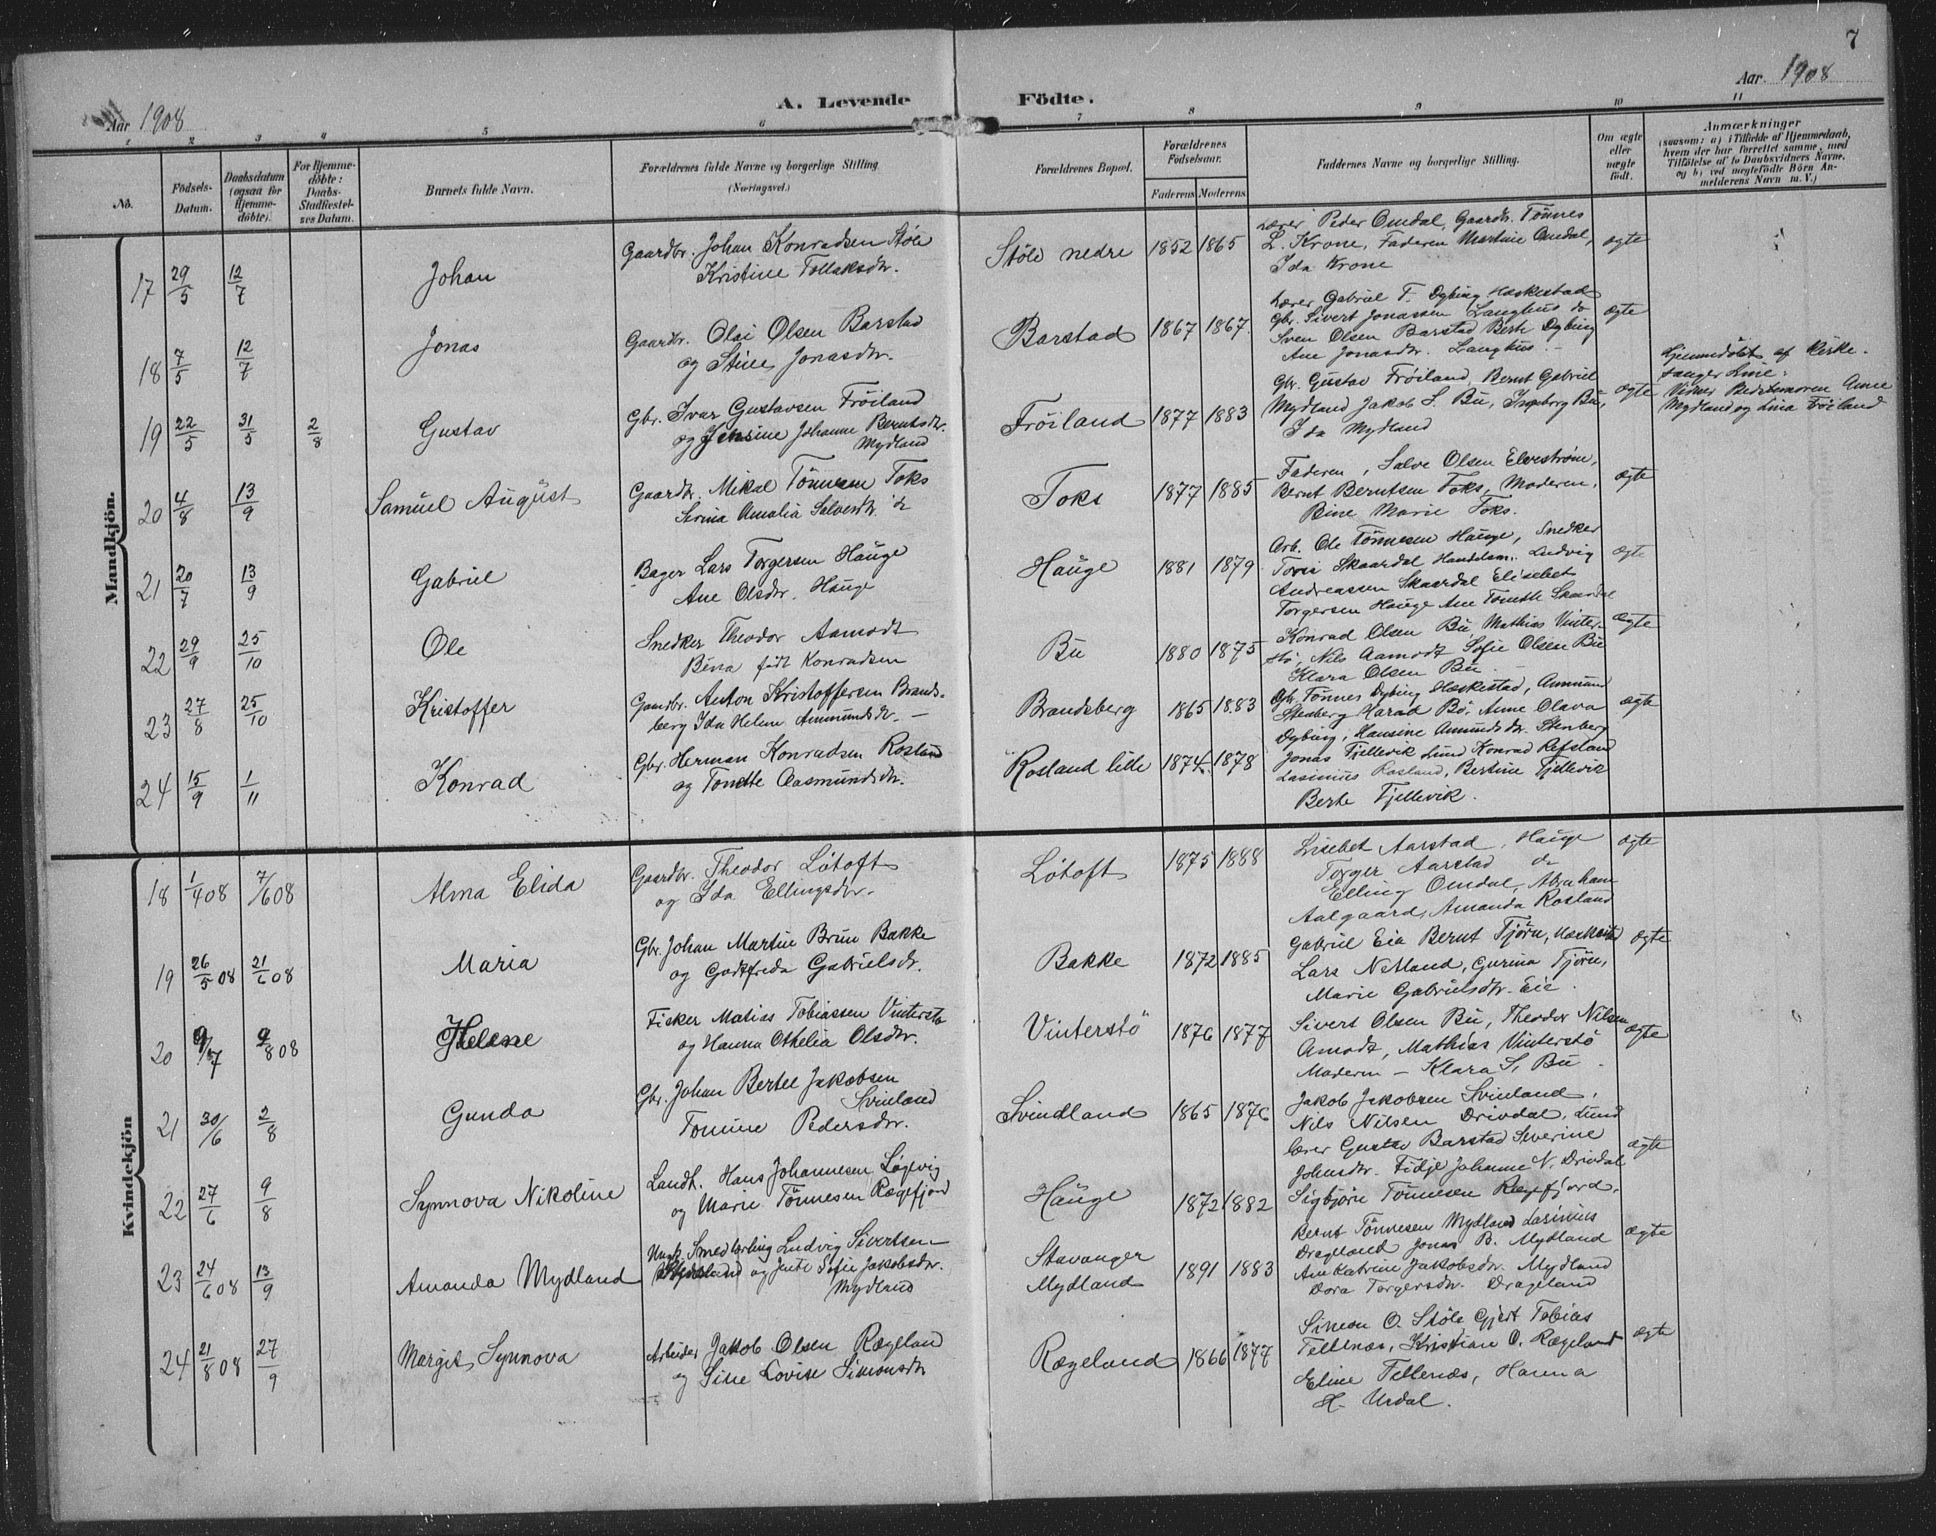 7
Aar 1908
A. Levende Födte.
Aar 1908
1 2 3 4 5 6 7 8 9 10 11
No.
Födsels-Datum.
Daabsdatum (ogsaa for Hjemme-döbte).
For Hjemme-döbte: Daabs-Stadfæstel-ses Datum.
Barnets fulde Navn.
Forældrenes fulde Navne og borgerlige Stilling (Næringsvei.)
Forældrenes Bopæl.
Forældrenes Födselsaar.
Faderens Moderens
Faddernes Navne og borgerlige Stilling.
Om ægte eller uægte födt.
Anmærkninger
(saasom: a) i Tilfælde af Hjemmedaab, hvem der har forrettet samme, med Tilföielse af to Daabsvidners Navne, og b) ved uægtefödte Börn An-melderens Navn m. V.)
Mandkjön.
17 29/5 12/7 Johan
Gaardbr. Johan Konradsen Støle
Kristine Tollaksdtr.
Støle nedre 1852 1865
Lærer Peder Omdal, Gaardbr. Tönnes
L. Krone, Faderen Martine Omdal,
Ida Krone
ægte
18 7/5 12/7 Jonas
Gaardbr. Olai Olsen Barstad
og Stine Jonasdtr.
Barstad 1867 1867
Lærer Gabriel T. Dybing Hæskestad
Gbr. Sivert Jonassen Langhus do
Sven Olsen Barstad Berte Dybing
Ane Jonasdtr. Langhus.
ægte
19 22/5 31/5 2/8 Gustav
Gbr. Ivar Gustavsen Frøiland
og Jensine Johanne Berntsdtr.
Mydland
Frøiland 1877 1883
Gbr. Gustav Frøiland, Bernt Gabriel
Mydland Jakob S. Bu, Ingeborg Bu,
Ida Mydland
ægte
Hjemmedöbt af Kirke-
sanger Line.
Vidner Bedstemoren Anne
Mydland og Lina Frøiland
20 4/8 13/9 Samuel August
Gaardbr. Mikal Tönnesen Toks
Serina Amalia Salvesdtr.
Toks 1877 1885
Faderen, Salve Olsen Elvestrøm,
Bernt Berntsen Toks, Moderen,
Bine Marie Toks.
ægte
21 20/7 13/9 Gabriel
Bager Lars Torgersen Hauge
Ane Olsdtr. Hauge
Hauge 1881 1879
Arb. Ole Tönnesen Hauge, Snedker
Skaardal Handelsm. Ludvig
Andreassen Skaardal Elisebet
Torgersen Hauge Ane Tomette Skaardal
ægte
22 29/9 25/10 Ole
Snedker Theodor Aamodt
Bina født Konradsen
Bu 1880 1875
Konrad Olsen Bu Mathias Vinter-
stø, Nils Aamodt Sofie Olsen Bu
Klara Olsen Bu
ægte
23 27/8 25/10 Kristoffer
Gaardbr. Anton Kristoffersen Brands-
berg Ida Helene Ammundsdtr.
Brandsberg 1865 1883
Gbr. Tönnes Dybing Hæskestad, Ammund
Stenberg Harald Bø, Anne Olava
Dybing, Hansine Amundsdtr. Stenberg
ægte
24 15/9 1/11 Konrad
Gbr. Herman Konradsen Rosland
og Tomette Aasmundsdtr.
Rosland lille 1874 1878
Jonas Fjellevik Lund Konrad Refsland
Lasimies Rosland, Bertine Fjellevik
Berte Fjellevik.
Kvindekjön
18 1/4 08 7/6 08 Alma Elida
Gaardbr. Theodor Løtoft
og Ida Ellingsdtr.
Løtoft 1875 1888
Lisebet Aarstad, Hauge
Torger Aarstad do
Elling Omdal, Abraham
Aalgaard, Amanda Rosland
ægte
19 26/5 08 21/6 08 Maria
Gbr. Johan Martin Brun Bakke
og Godtfreda Gabrielsdtr.
Bakke 1872 1885
Gabriel Eia Bernt Tjørn, Hæskestad
Lars Netland, Gurina Tjørn,
Marie Gabrielsdtr. Eie.
ægte
20 9/7 9/8 08 Helene
Fisker Matias Tobiassen Vinterstø
og Hanna Othelia Olsdtr.
Vinterstö 1876 1877
Sivert Olsen Bu, Theodor Nilsen
Amodt, Mathias Vinterstö
Moderen - Klara S. Bu.
ægte
21 30/6 2/8 Gunda
Gbr. Johan Bertel Jakobsen
Svinland
Tomine Pedersdtr.
Svindland 1865 1876
Jakob Jakobsen Svinland,
Nils Nilsen Drivdal, Lund
Lærer Gustav Barstad Severine
Johnsdtr. Fidje Johanne N. Drivdal
ægte
22 27/6 9/8 Synnova Nikoline
Landh. Hans Johannesen Løgevig
og Marie Tönnesen Rægefjord
Hauge 1872 1882
Sigbjørn Tönnesen Rægefjord.
Bernt Tönnesen Mydland Lasinius
Drageland Jonas B. Mydland
ægte
23 24/6 08 13/9 Amanda Mydland
Ungk. Smedlærling Ludvig Sivertsen
og Jente Sofie Jakobsdtr.
Mydland
Stavanger
Mydland 1891 1883
Ane Katrine Jakobsdtr. Mydland
Dora Torgersdtr. Drageland
24 21/8 08 27/9 Margit Synnova
Arbeider Jakob Olsen Rægeland
og Sine Lovise Simonsdtr
Rægeland 1866 1877
Simeon O. Støle Gjert Tobias
Tellenæs, Kristian O. Rægeland
Eline Tellenæs, Hanna
H. Urdal.
ægte